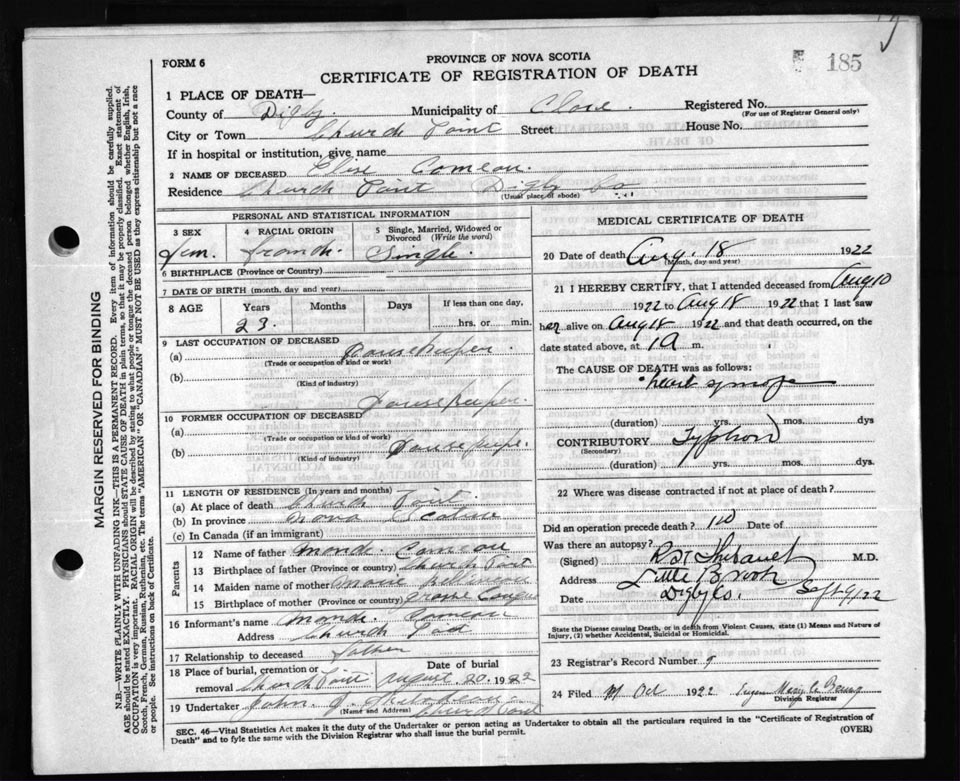 185
FORM 6
PROVINCE OF NOVA SCOTIA
CERTIFICATE OF REGISTRATION OF DEATH
1 PLACE OF DEATH—
County of Digby. Municipality of Clare. Registered No.
(For use of Registrar General only)
City or Town Church Point Street House No.
If in hospital or institution, give name
2 NAME OF DECEASED Elise Comeau.
Residence Church Point Digby Co
(Usual place of abode)
PERSONAL AND STATISTICAL INFORMATION
3 SEX
4 RACIAL ORIGIN
5 Single, Married, Widowed or Divorced (Write the word)
Fem. French. Single.
6 BIRTHPLACE (Province or Country)
7 DATE OF BIRTH (month, day and year)
8 AGE Years Months Days If less than one day,
23. hrs. or min.
9 LAST OCCUPATION OF DECEASED
(a) Housekeeper.
(Trade or occupation of kind or work)
(b)
(Kind of industry)
Housekeeper.
10 FORMER OCCUPATION OF DECEASED
(a)
(Trade or occupation of kind or work)
(b)
(Kind of industry)
11 LENGTH OF RESIDENCE (In years and months)
(a) At place of death Church Point
(b) In province Nova Scotia
(c) In Canada (if an immigrant)
Parents
12 Name of father Comeau
13 Birthplace of father (Province or country) Church Point
14 Maiden name of mother Marie
15 Birthplace of mother (Province or country) Grosse Coques
16 Informant's name Comeau
Address Church Point
17 Relationship to deceased father
18 Place of burial, cremation or removal Church Point
Date of burial
August 20. 1922
19 Undertaker John J.
(Name and Address) Church Point
MEDICAL CERTIFICATE OF DEATH
20 Date of death Aug. 18 1922
(Month, day and year)
21 I HEREBY CERTIFY, that I attended deceased from Aug 10
1922 to Aug 18 1922 that I last saw
her alive on Aug 18 1922 and that death occurred, on the
date stated above, at 1 a m.
The CAUSE OF DEATH was as follows:
heart
(duration) yrs. mos. dys
CONTRIBUTORY Typhoid
(Secondary)
(duration) yrs. mos. dys.
22 Where was disease contracted if not at place of death?
Did an operation precede death? no Date of
Was there an autopsy?
(Signed) M.D.
Address Little Brook
Digby Co.
Date Sept 9/22
State the Disease causing Death, or in death from Violent Causes, state (1) Means and Nature of
Injury, (2) whether Accidental, Suicidal or Homicidal.
23 Registrar's Record Number 9
24 Filed Oct 1922
Division Registrar
SEC. 46—Vital Statistics Act makes it the duty of the Undertaker or person acting as Undertaker to obtain all the particulars required in the "Certificate of Registration of
Death" and to fyle the same with the Division Registrar who shall issue the burial permit.
(OVER)
MARGIN RESERVED FOR BINDING
N.B.—WRITE PLAINLY, WITH UNFADING INK—THIS IS A PERMANENT RECORD. Every item of information should be carefully supplied.
AGE should be stated EXACTLY. PHYSICIANS should STATE CAUSE OF DEATH in plain terms, so that it may be properly classified. Exact statement of
OCCUPATION is very important. RACIAL ORIGIN will be described by stating to what people or tongue the deceased person belonged whether English, Irish,
Scotch, French, German, Russian, Ruthenian, etc. The terms "AMERICAN" or "CANADIAN" MUST NOT BE USED as they express citizenship but not a race
or people. See instructions on back of Certificate.